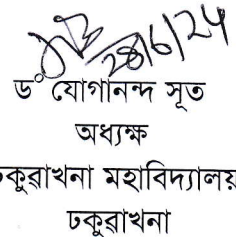 28/6/24
ড° যোগানন্দ সূত
অধ্যক্ষ
ঢকুৱাখনা মহাবিদ্যালয়
ঢকুৱাখনা